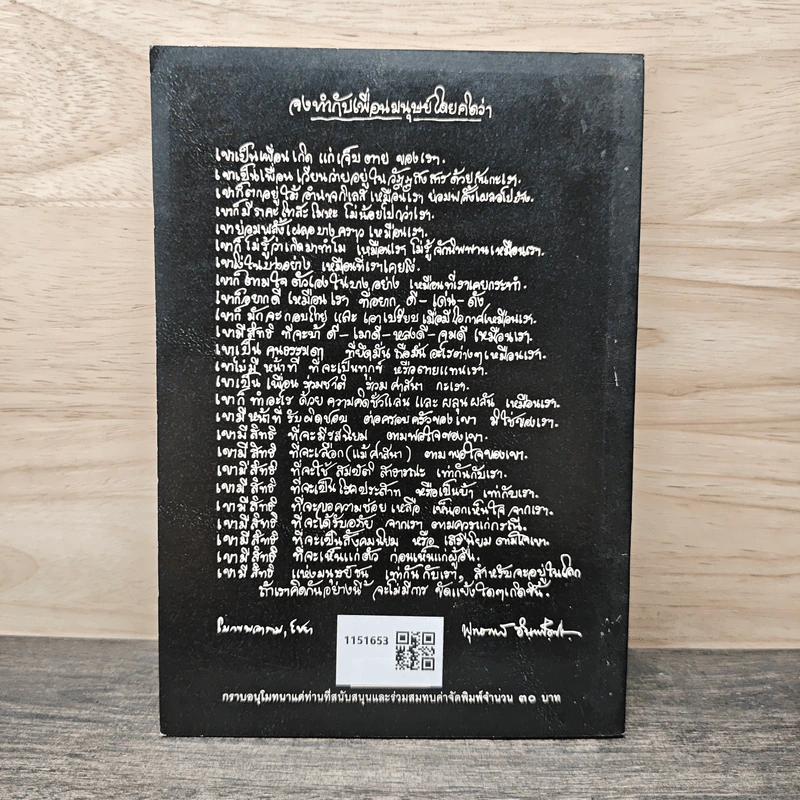 จงทำกับเพื่อนมนุษย์โดยคิดว่า
เขาเป็นเพื่อน เกิด แก่ เจ็บ ตาย ของเรา.
เขาเป็นเพื่อน เวียนว่ายอยู่ใน วัฏฏสงสาร ด้วยกันกะเรา.
เขาก็ตกอยู่ใต้ อำนาจกิเลส เหมือนเรา ย่อมพลั้งเผลอไปบ้าง.
เขาก็มี ราคะ โทสะ โมหะ ไม่น้อยไปกว่าเรา.
เขาย่อมพลั้งเผลอบางคราว เหมือนเรา.
เขาก็ ไม่รู้ว่าเกิดมาทำไม เหมือนเรา ไม่รู้จักนิพพานเหมือนเรา.
เขาโง่ในบางอย่าง เหมือนที่เราเคยโง่.
เขาก็ตามใจ ตัวเองในบางอย่าง เหมือนที่เราเคยกระทำ.
เขาก็อยากดี เหมือนเรา ที่อยาก ดี - เด่น - ดัง.
เขาก็ มักจะกอบโกย และ เอาเปรียบ เมื่อมีโอกาสเหมือนเรา.
เขามีสิทธิ ที่จะบ้า ดี - เมาดี - หลงดี - จมดี เหมือนเรา.
เขาเป็น คนธรรมดา ที่ยึดมั่น ถือมั่น อะไรต่างๆ เหมือนเรา.
เขาไม่มี หน้าที่ ที่จะเป็นทุกข์ หรือตายแทนเรา.
เขาเป็น เพื่อน ร่วมชาติ ร่วม ศาสนา กะเรา.
เขาก็ ทำอะไร ด้วย ความคิดชั่วแล่น และ ผลุนผลัน เหมือนเรา.
เขามีหน้าที่ รับผิดชอบ ต่อครอบครัวของเขา มิใช่ของเรา.
เขามีสิทธิ ที่จะมีรสนิยม ตามพอใจของเขา.
เขามีสิทธิ ที่จะเลือก (แม้ศาสนา) ตามพอใจของเขา.
เขามีสิทธิ ที่จะใช้ สมบัติ สาธารณะ เท่ากันกับเรา.
เขามีสิทธิ ที่จะเป็น โรคประสาท หรือเป็นบ้า เท่ากับเรา.
เขามีสิทธิ ที่จะขอความช่วยเหลือ เห็นอกเห็นใจ จากเรา.
เขามีสิทธิ ที่จะได้รับอภัย จากเรา ตามควรแก่กรณี.
เขามีสิทธิ ที่จะเป็นสังคมนิยม หรือ เสรีนิยม ตามใจเขา.
เขามีสิทธิ ที่จะเห็นแก่ตัว ก่อนเห็นแก่ผู้อื่น.
เขามีสิทธิ แห่งมนุษย์ชน เท่ากันกับเรา, สำหรับจะอยู่ในโลก
ถ้าเราคิดกันอย่างนี้ จะไม่มีการ ขัดแย้งใดๆเกิดขึ้น.
โมกขพลาราม, ไชยา
พุทธทาส อินทปัญโญ
1151653
กราบอนุโมทนาแด่ท่านที่สนับสนุนและร่วมสมทบค่าจัดพิมพ์จำนวน ๓๐ บาท